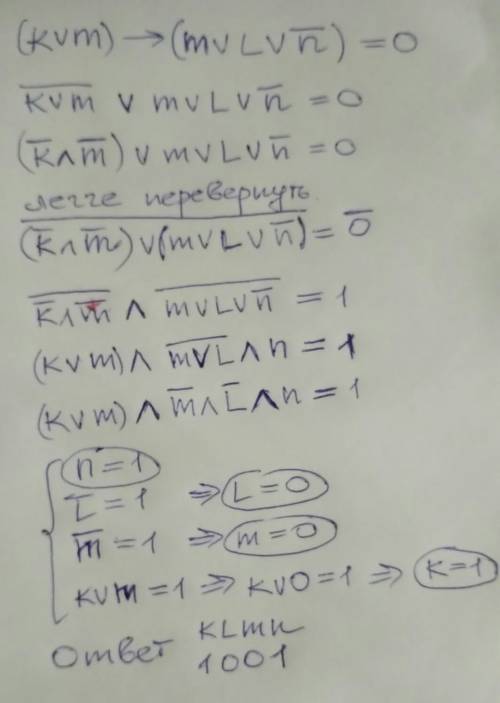 (K∨m) → (m∨L∨n̅) = 0
K̅∨̅m̅ ∨ m∨L∨n̅ = 0
(K̅∧m̅)∨m∨L∨n̅ = 0
легче перевернуть
\overline{(K̅∧m̅)∨(m∨L∨n̅)} = 0̅
\overline{K̅∧m̅} ∧ \overline{m∨L∨n̅} = 1
(K∨m)∧ \overline{m∨L} ∧n = 1
(K∨m)∧m̅∧L̅∧n = 1
n = 1
L̅ = 1 ⇒ L = 0
m̅ = 1 ⇒ m = 0
K∨m = 1 ⇒ K∨0 = 1 ⇒ K = 1
Ответ KLmn
1001